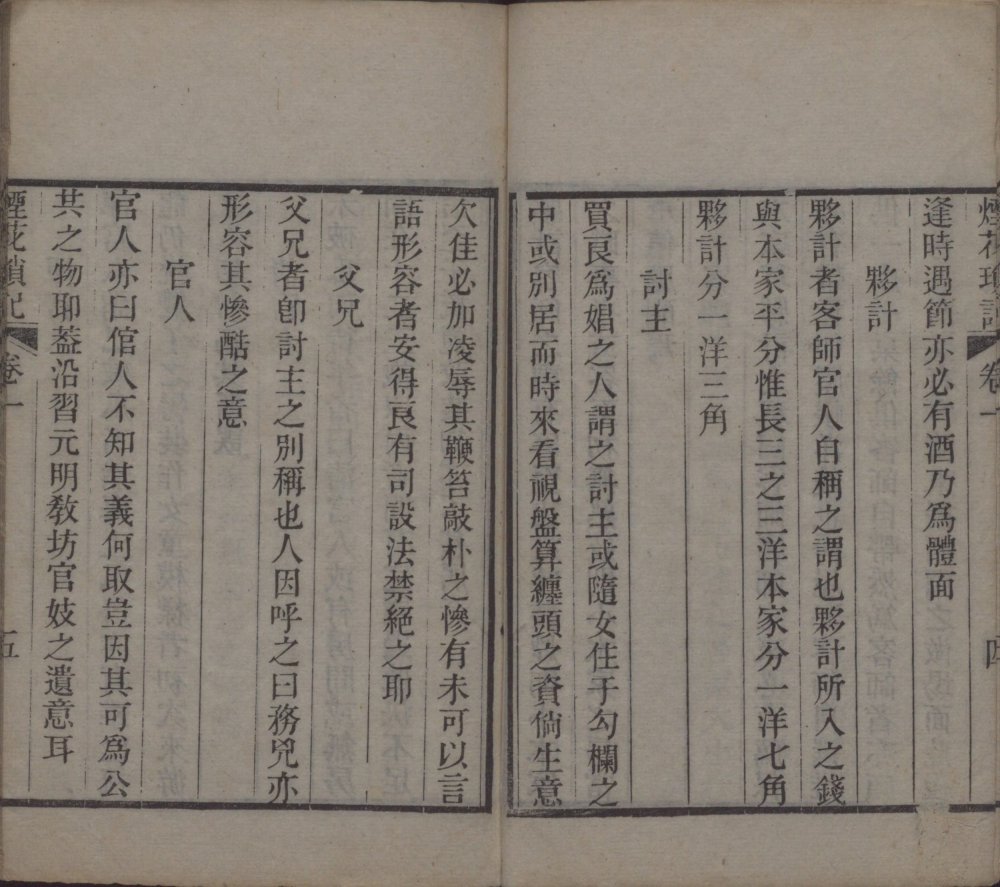 煙花瑣記 卷一 四
逢時遇節亦必有酒乃爲體面
夥計
夥計者客師官人自稱之謂也夥計所入之錢
與本家平分惟長三之三洋本家分一洋七角
夥計分一洋三角
討主
買良爲娼之人謂之討主或隨女住于勾欄之
中或別居而時來看視盤算纏頭之資倘生意
欠佳必加凌辱其鞭笞敲朴之慘有未可以言
語形容者安得良有司設法禁絕之耶
父兄
父兄者卽討主之別稱也人因呼之曰務兇亦
形容其慘酷之意
官人
官人亦曰倌人不知其義何取豈因其可爲公
共之物耶蓋沿習元明敎坊官妓之遺意耳
煙花瑣記 卷一 五